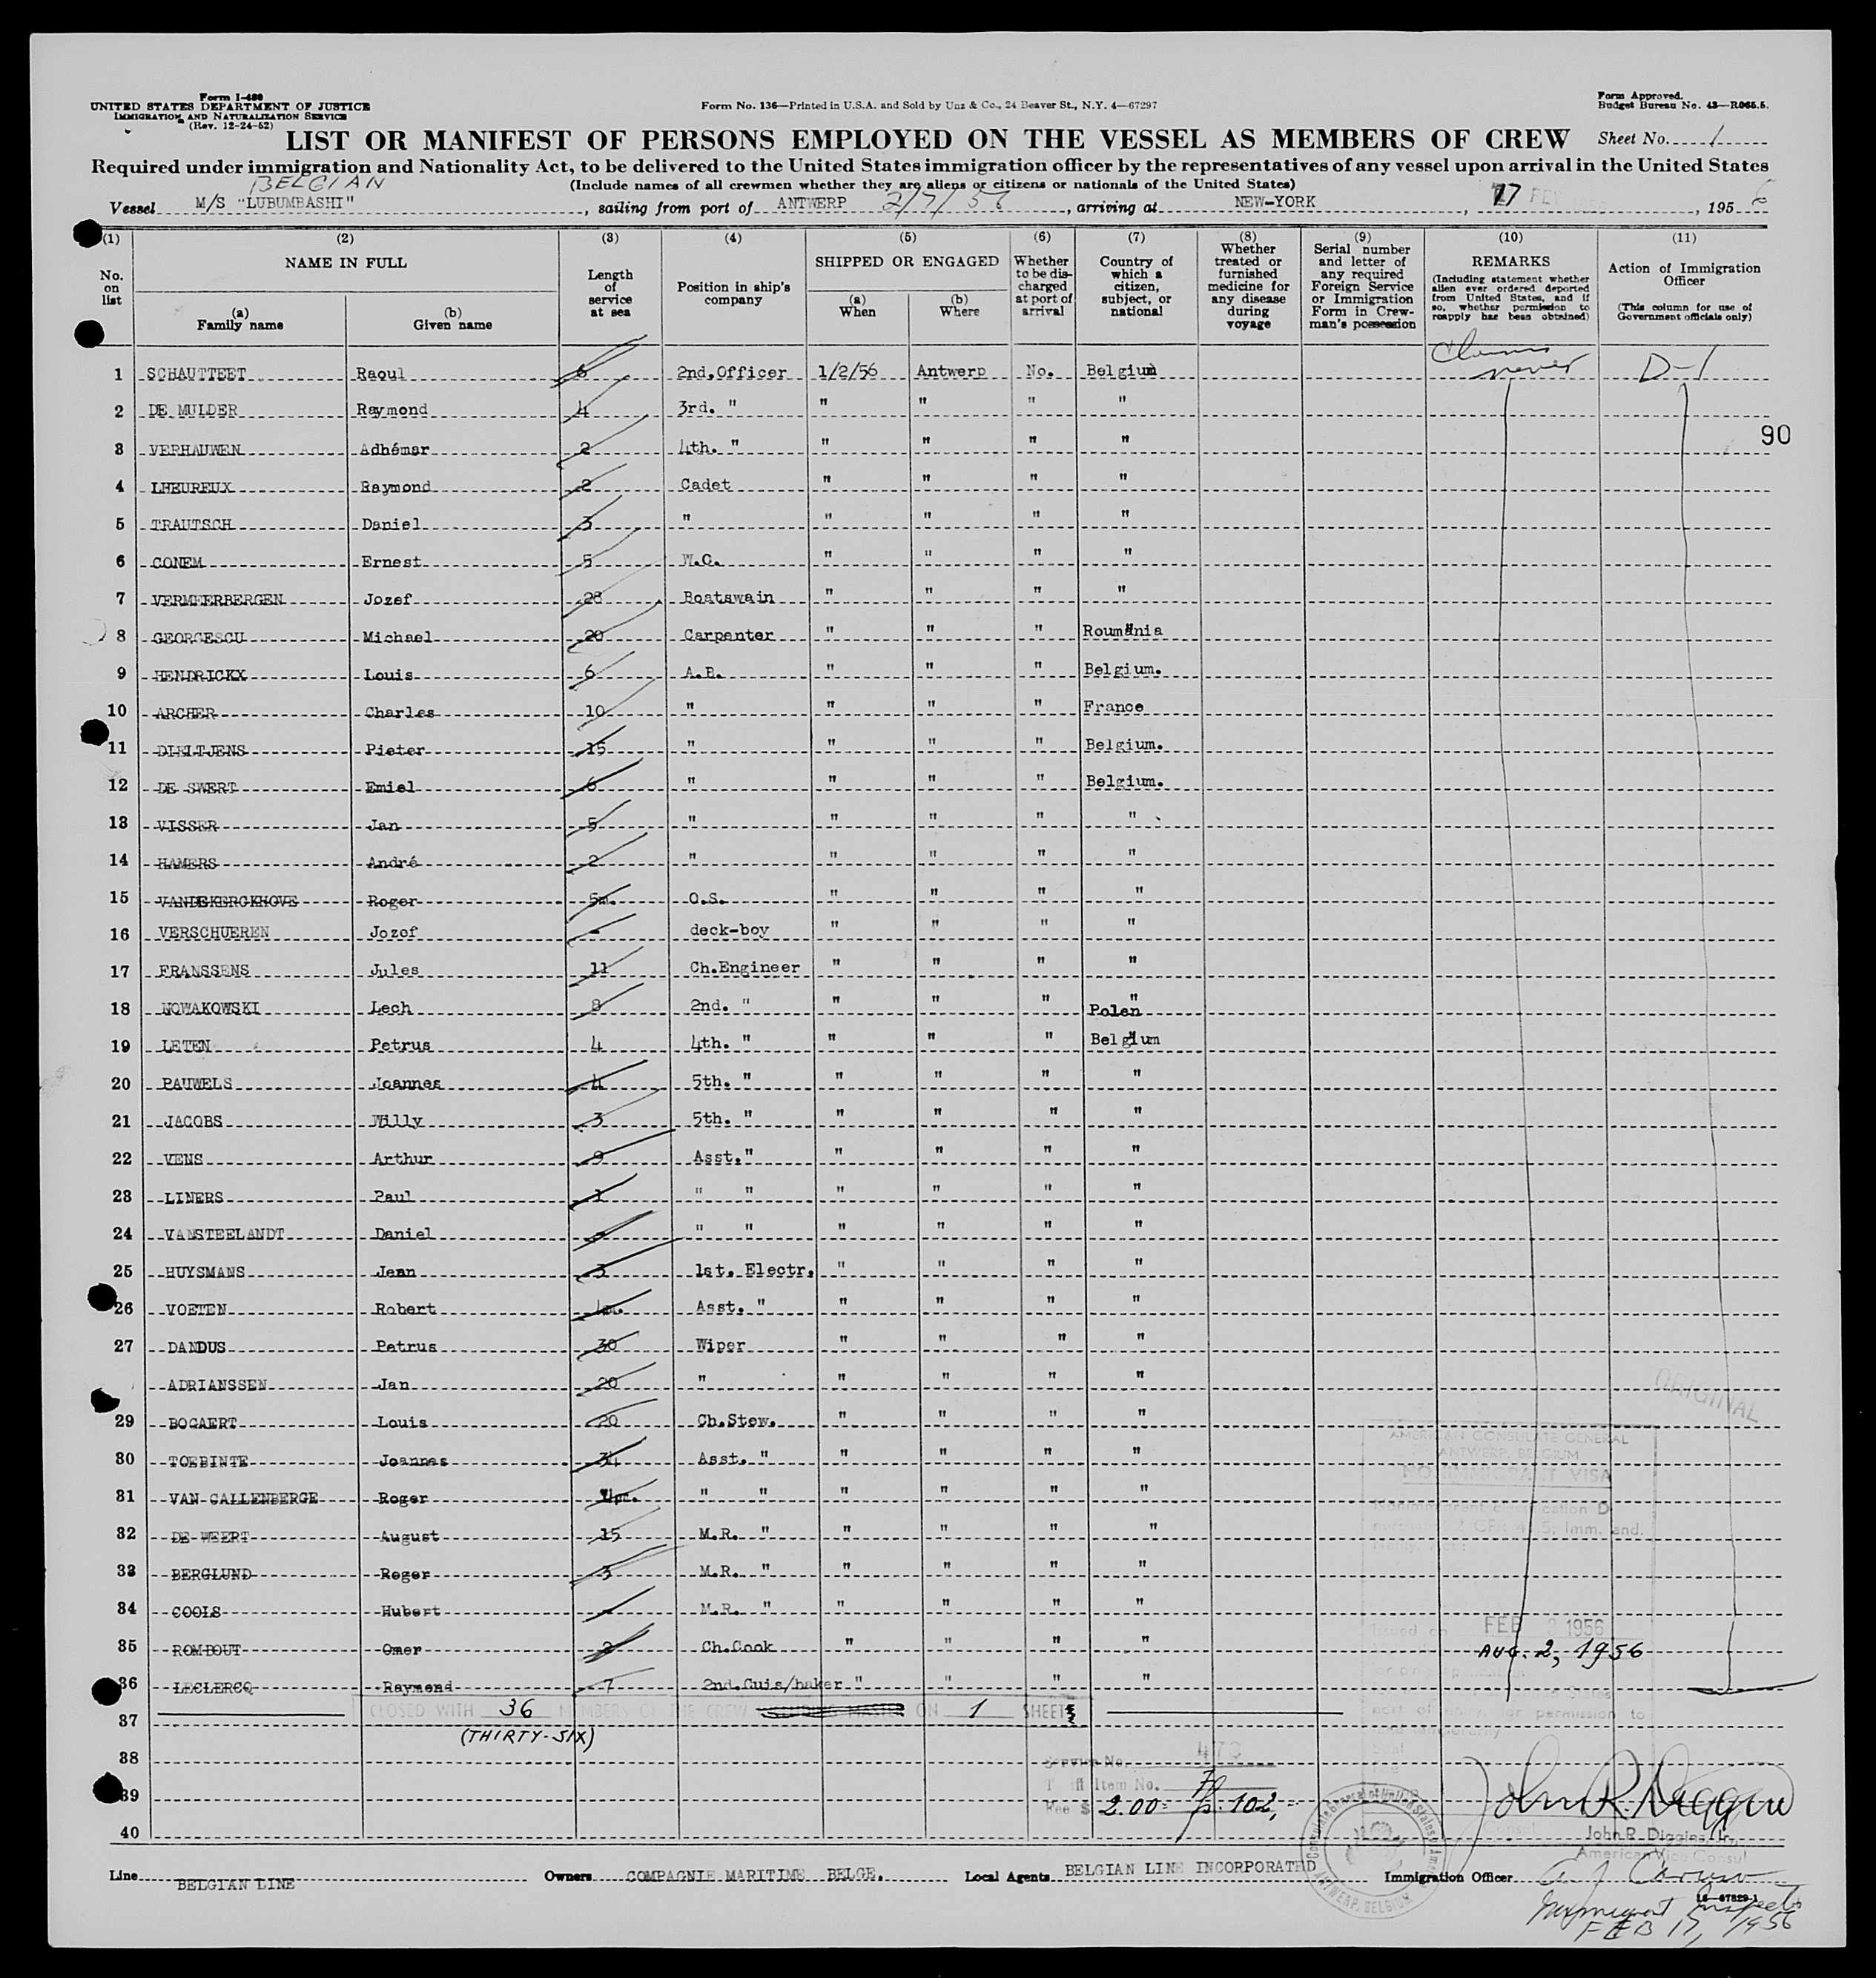 Form I-480
UNITED STATES DEPARTMENT OF JUSTICE
IMMIGRATION AND NATURALIZATION SERVICE
(Rev. 12-24-52)
Form No. 136—Printed in U.S.A. and Sold by Unz & Co., 24 Beaver St., N.Y. 4—67297
Form Approved.
Budget Bureau No. 43—R065.5.
LIST OR MANIFEST OF PERSONS EMPLOYED ON THE VESSEL AS MEMBERS OF CREW
Sheet No. 1
Required under immigration and Nationality Act, to be delivered to the United States immigration officer by the representatives of any vessel upon arrival in the United States
BELGIAN
(Include names of all crewmen whether they are aliens or citizens or nationals of the United States)
Vessel M/S "LUBUMBASHI", sailing from port of ANTWERP 2/7/56, arriving at NEW-YORK, 17 FEV 1956, 195 6
(1) (2) (3) (4) (5) (6) (7) (8) (9) (10) (11)
No. on list
NAME IN FULL
(a) Family name
(b) Given name
Length of service at sea
Position in ship's company
SHIPPED OR ENGAGED
(a) When
(b) Where
Whether to be discharged at port of arrival
Country of which a citizen, subject, or national
Whether treated or furnished medicine for any disease during voyage
Serial number and letter of any required Foreign Service or Immigration Form in Crewman's possession
REMARKS
(Including statement whether alien ever ordered deported from United States, and if so, whether permission to reapply has been obtained)
Action of Immigration Officer
(This column for use of Government officials only)
1 SCHAUTTEET Raoul 6 2nd.Officer 1/2/56 Antwerp No. Belgium Claims never D-1
2 DE MULDER Raymond 4 3rd. " " " " "
90
3 VERHAUWEN Adhémar 2 4th. " " " " "
4 LHEUREUX Raymond 2 Cadet " " " "
5 TRAUTSCH Daniel 3 " " " " "
6 CONEM Ernest 5 W.O. " " " "
7 VERMEERBERGEN Jozef 28 Boatswain " " " "
8 GEORGESCU Michael 20 Carpenter " " " Roumania
9 HENDRICKX Louis 6 A.B. " " " Belgium.
10 ARCHER Charles 10 " " " " France
11 DIELTJENS Pieter 15 " " " " Belgium.
12 DE SWERT Emiel 6 " " " " Belgium.
13 VISSER Jan 5 " " " " "
14 HAMERS André 2 " " " " "
15 VANDEKERCKHOVE Roger 5m. O.S. " " " "
16 VERSCHUEREN Jozef - deck-boy " " " "
17 FRANSSENS Jules 11 Ch.Engineer " " " "
18 NOWAKOWSKI Lech 8 2nd. " " " " " Polen
19 LETEN Petrus 4 4th. " " " " Belgium
20 PAUWELS Joannes 4 5th. " " " " "
21 JACOBS Willy 3 5th. " " " " "
22 VENS Arthur 9 Asst." " " " "
23 LINERS Paul 1 " " " " " "
24 VANSTEELANDT Daniel - " " " " " "
25 HUYSMANS Jean 3 1st. Electr. " " " "
26 VOETEN Robert 4m. Asst. " " " " "
27 DANDUS Petrus 30 Wiper " " " "
ADRIANSSEN Jan 20 " " " " "
29 BOGAERT Louis 20 Ch.Stew. " " " "
30 TOEBINTE Joannes 34 Asst. " " " " "
31 VAN CALLENBERGE Roger " " " " " "
32 DE WEERT August 15 M.R. " " " " "
33 BERGLUND Roger 3 M.R. " " " " "
34 COOLS Hubert - M.R. " " " " "
35 ROMBOUT Omer 2 Ch.Cook " " " "
36 LECLERCQ Raymond 7 2nd.Cuis/baker " " " "
ORIGINAL
AMERICAN CONSULATE GENERAL
ANTWERP, BELGIUM
NONIMMIGRANT VISA
Nonimmigrant classification D
Issued on FEB 2 1956
AUG. 2, 1956
37 CLOSED WITH 36 MEMBERS OF THE CREW ON 1 SHEET
(THIRTY-SIX)
38
39
40
Service No. 478
Tariff Item No.
Fee $ 2.00= 102,-
Consulate General of United States of America
ANTWERP, BELGIUM
John R. Diggins
John R. Diggins, Jr.
American Vice Consul
Line BELGIAN LINE Owners COMPAGNIE MARITIME BELGE. Local Agents BELGIAN LINE INCORPORATED Immigration Officer
16—67829-1
Immigrant Inspector
FEB 17, 1956